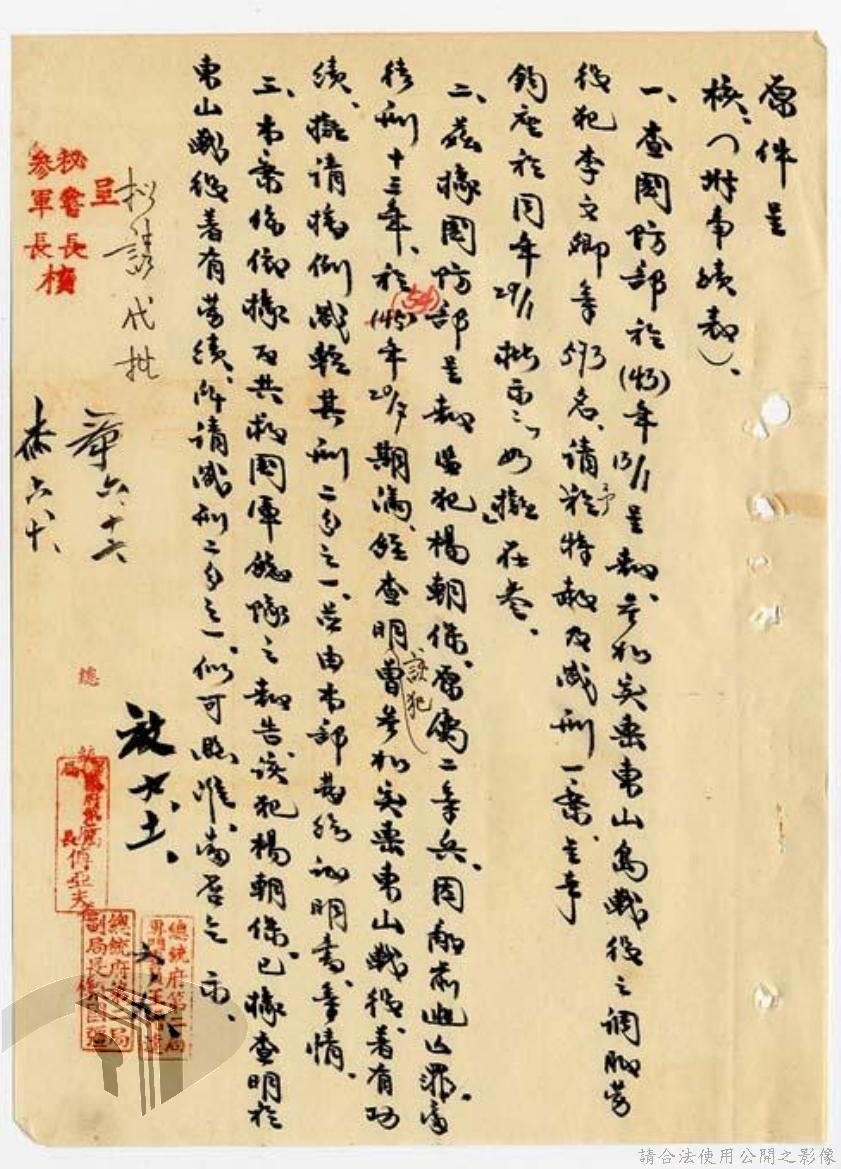 原件呈
核、(附事績表)、
一、查國防部於(43)年13/1呈報、參加突擊東山島戰役之調服勞
役犯李文卿等593名、請予特赦及減刑一案、呈奉
鈞座於同年29/1批示:「如擬」在卷、
二、茲據國防部呈報監犯楊朝保、原為二等兵、因 罪、處
徒刑十三年、於(54)年20/7期滿、經查明該犯曾參加突擊東山戰役、著有功
績、擬請援例減輕其刑二分之一、並由本部 證明書、等情、
三、本案係依據反共救國軍總隊之報告、該犯楊朝保、已據查明於
東山戰役著有勞績、所請減刑二分之一、似可照准、當否乞 示、
擬請代批
呈
秘書長
參軍長核
六、十六
六、十、
總統府第二局
局長傅亞夫
總統府第二局
副局長
總統府第二局
請合法使用公開之影像